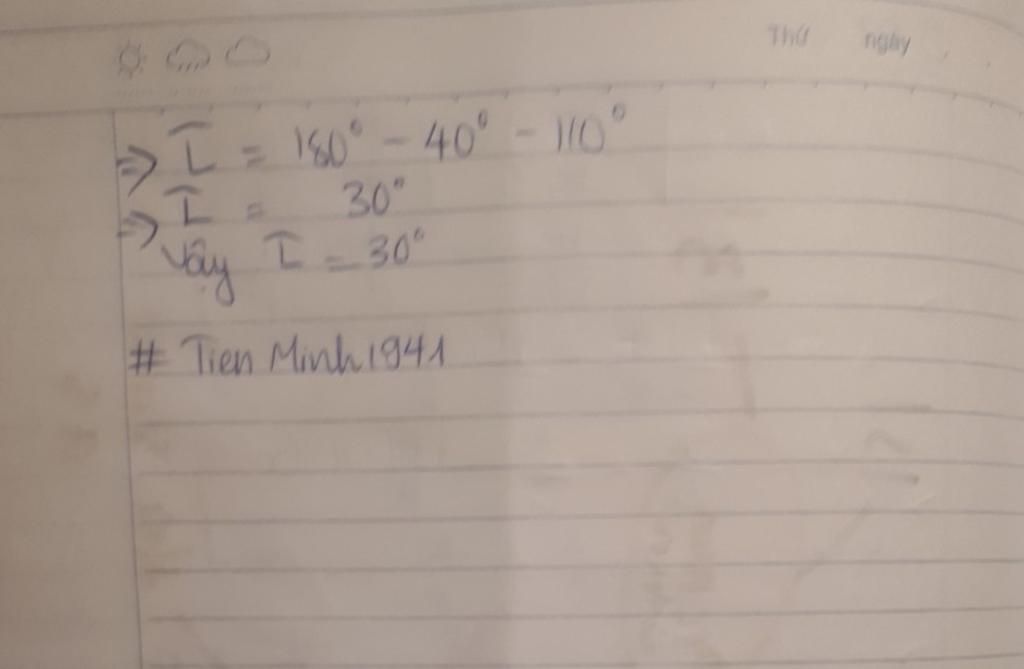 Thứ ngày
⇒ L̂ = 180° - 40° - 110°
⇒ L̂ = 30°
Vậy L̂ = 30°
# Tien Minh1941